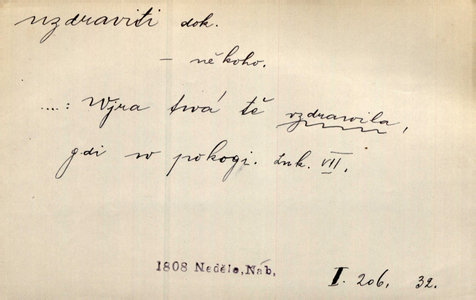 uzdraviti dok.
– někoho.
....: Wjra twá tě vzdrawila,
gdi w pokogi. Luk. VII.
1808 Neděle, Náb.
I. 206. 32.